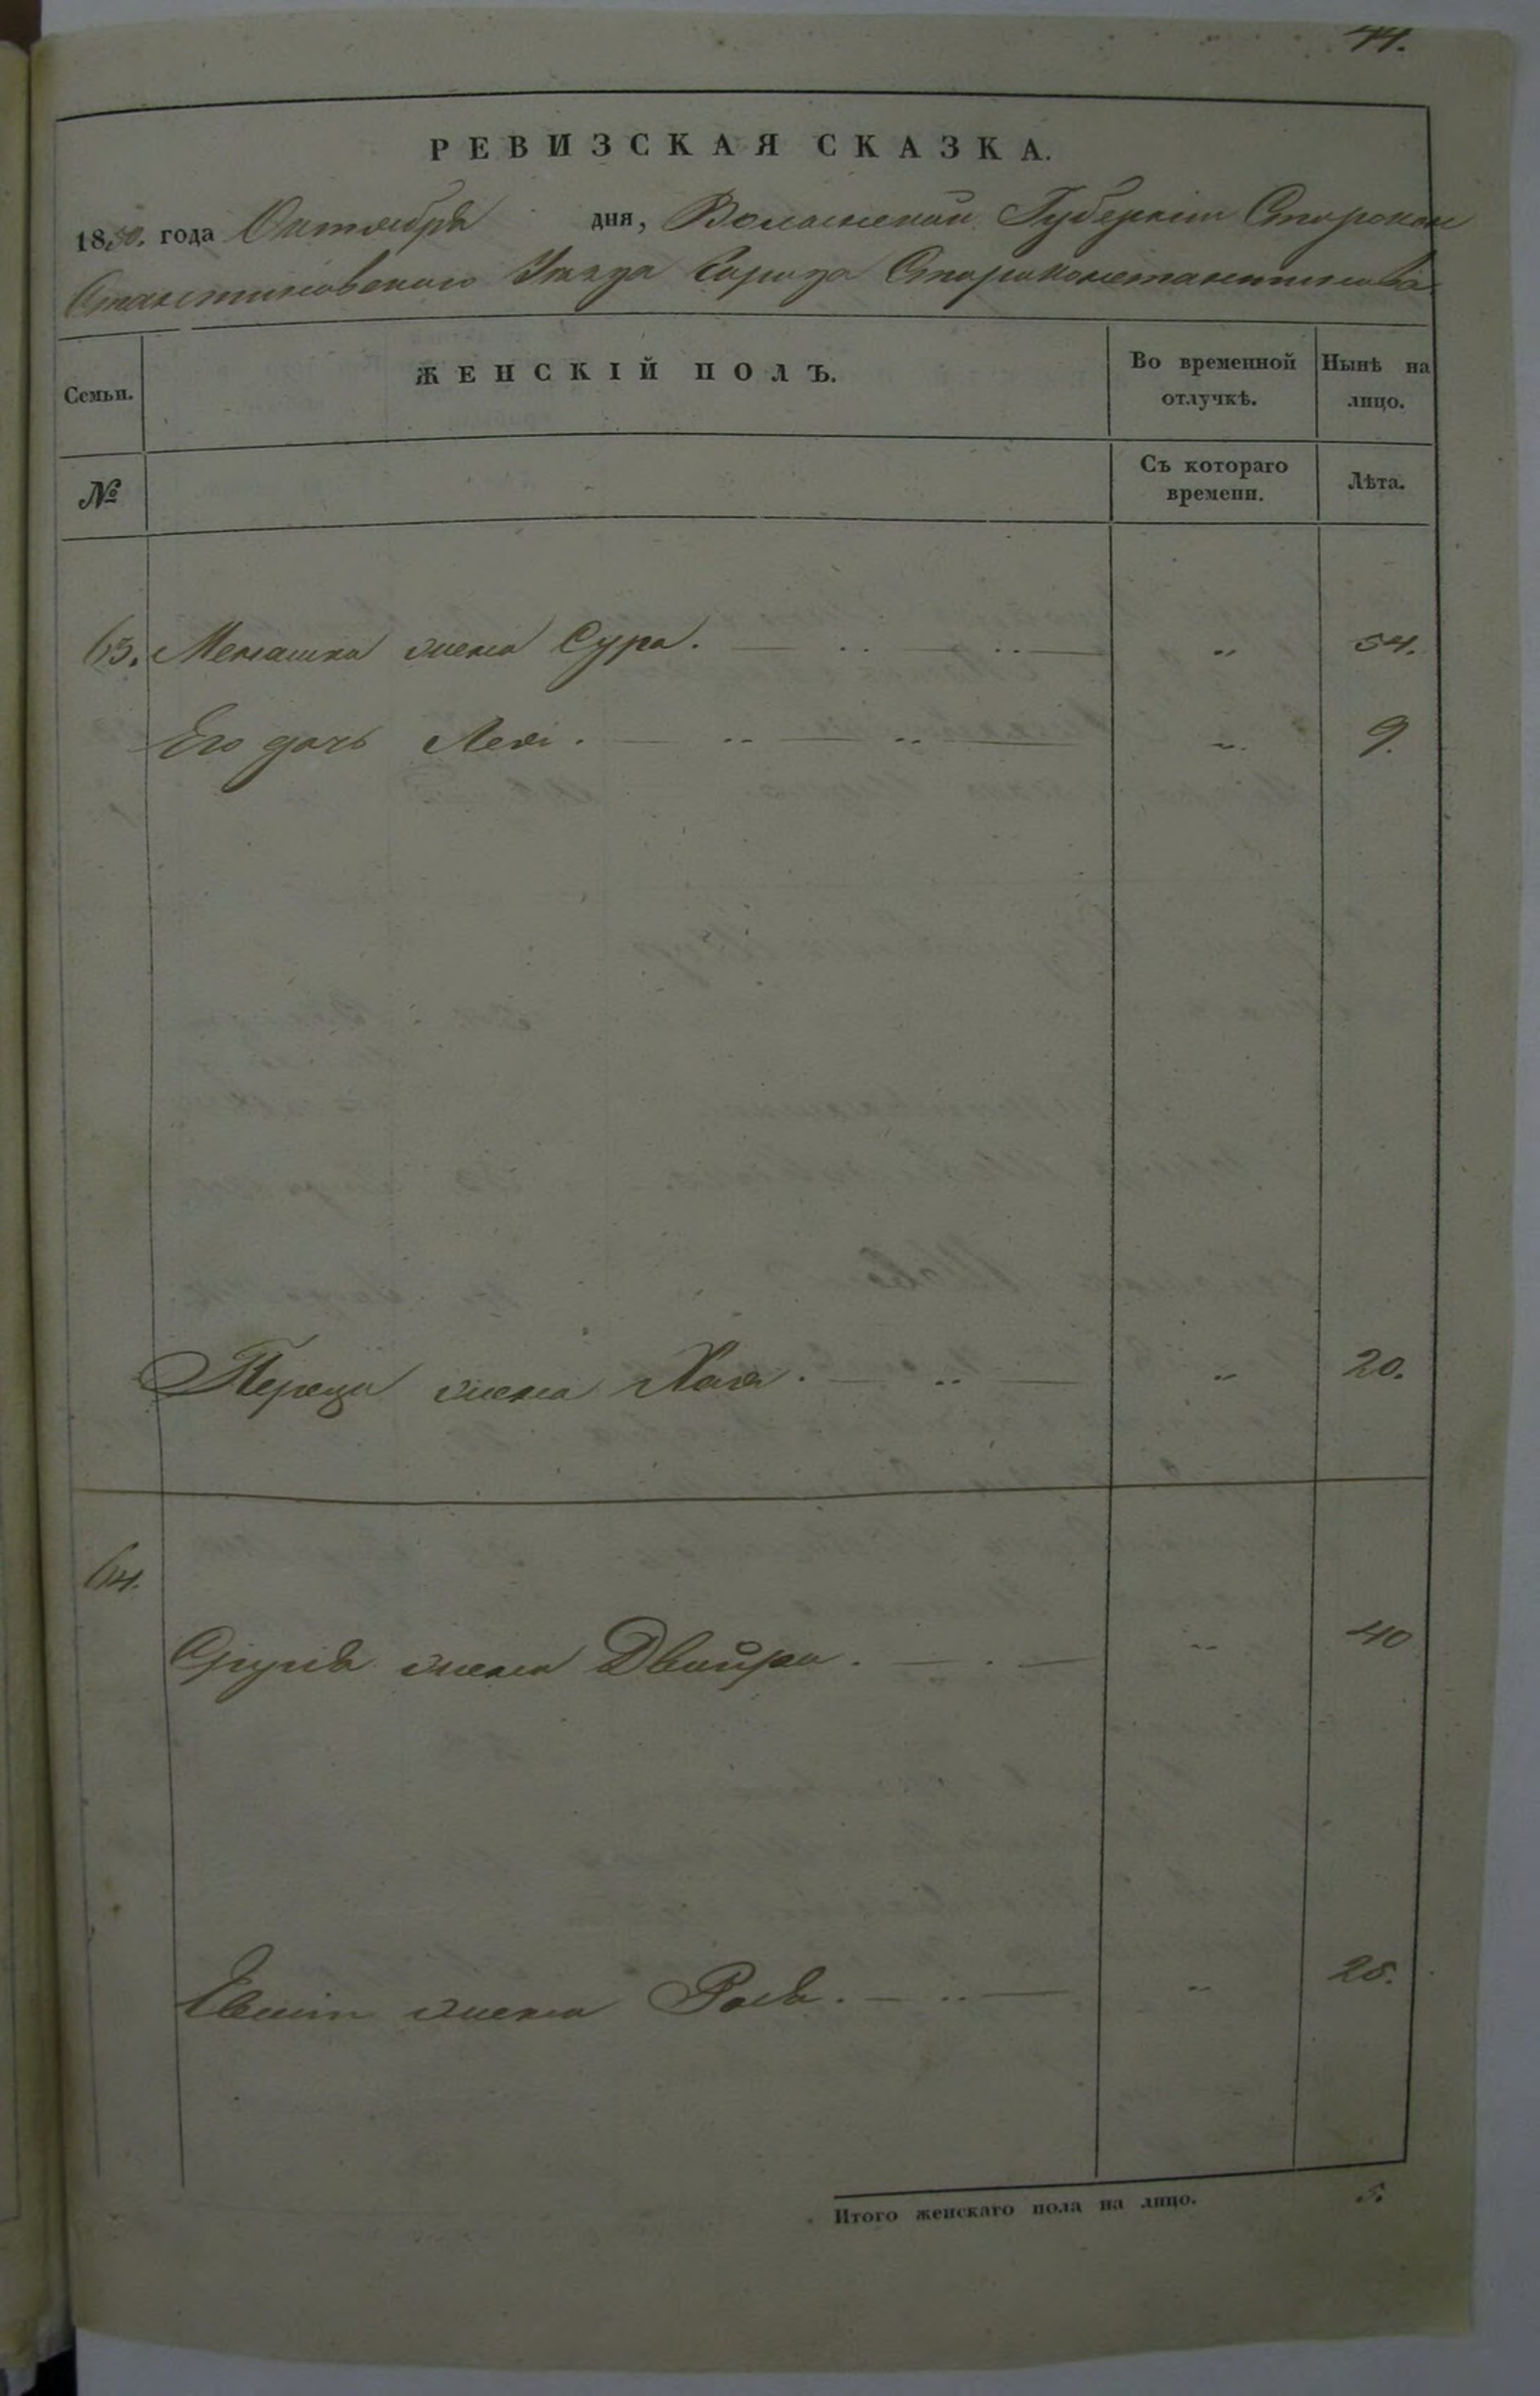 44.
РЕВИЗСКАЯ СКАЗКА.
1850. года Октября дня, Волынской Губерніи Старокон
стантиновскаго Уезда Города Староконстантинова
Семьи. ЖЕНСКІЙ ПОЛЪ. Во временной отлучкѣ. Нынѣ на лицо.
№ Съ котораго времени. Лѣта.
63. Менашка жена Сура. „ 54.
Его дочь Лея. „ 9.
Переца жена Хая. „ 20.
64.
жена Двойра. „ 40
жена „ 25.
Итого женскаго пола на лицо. 5.